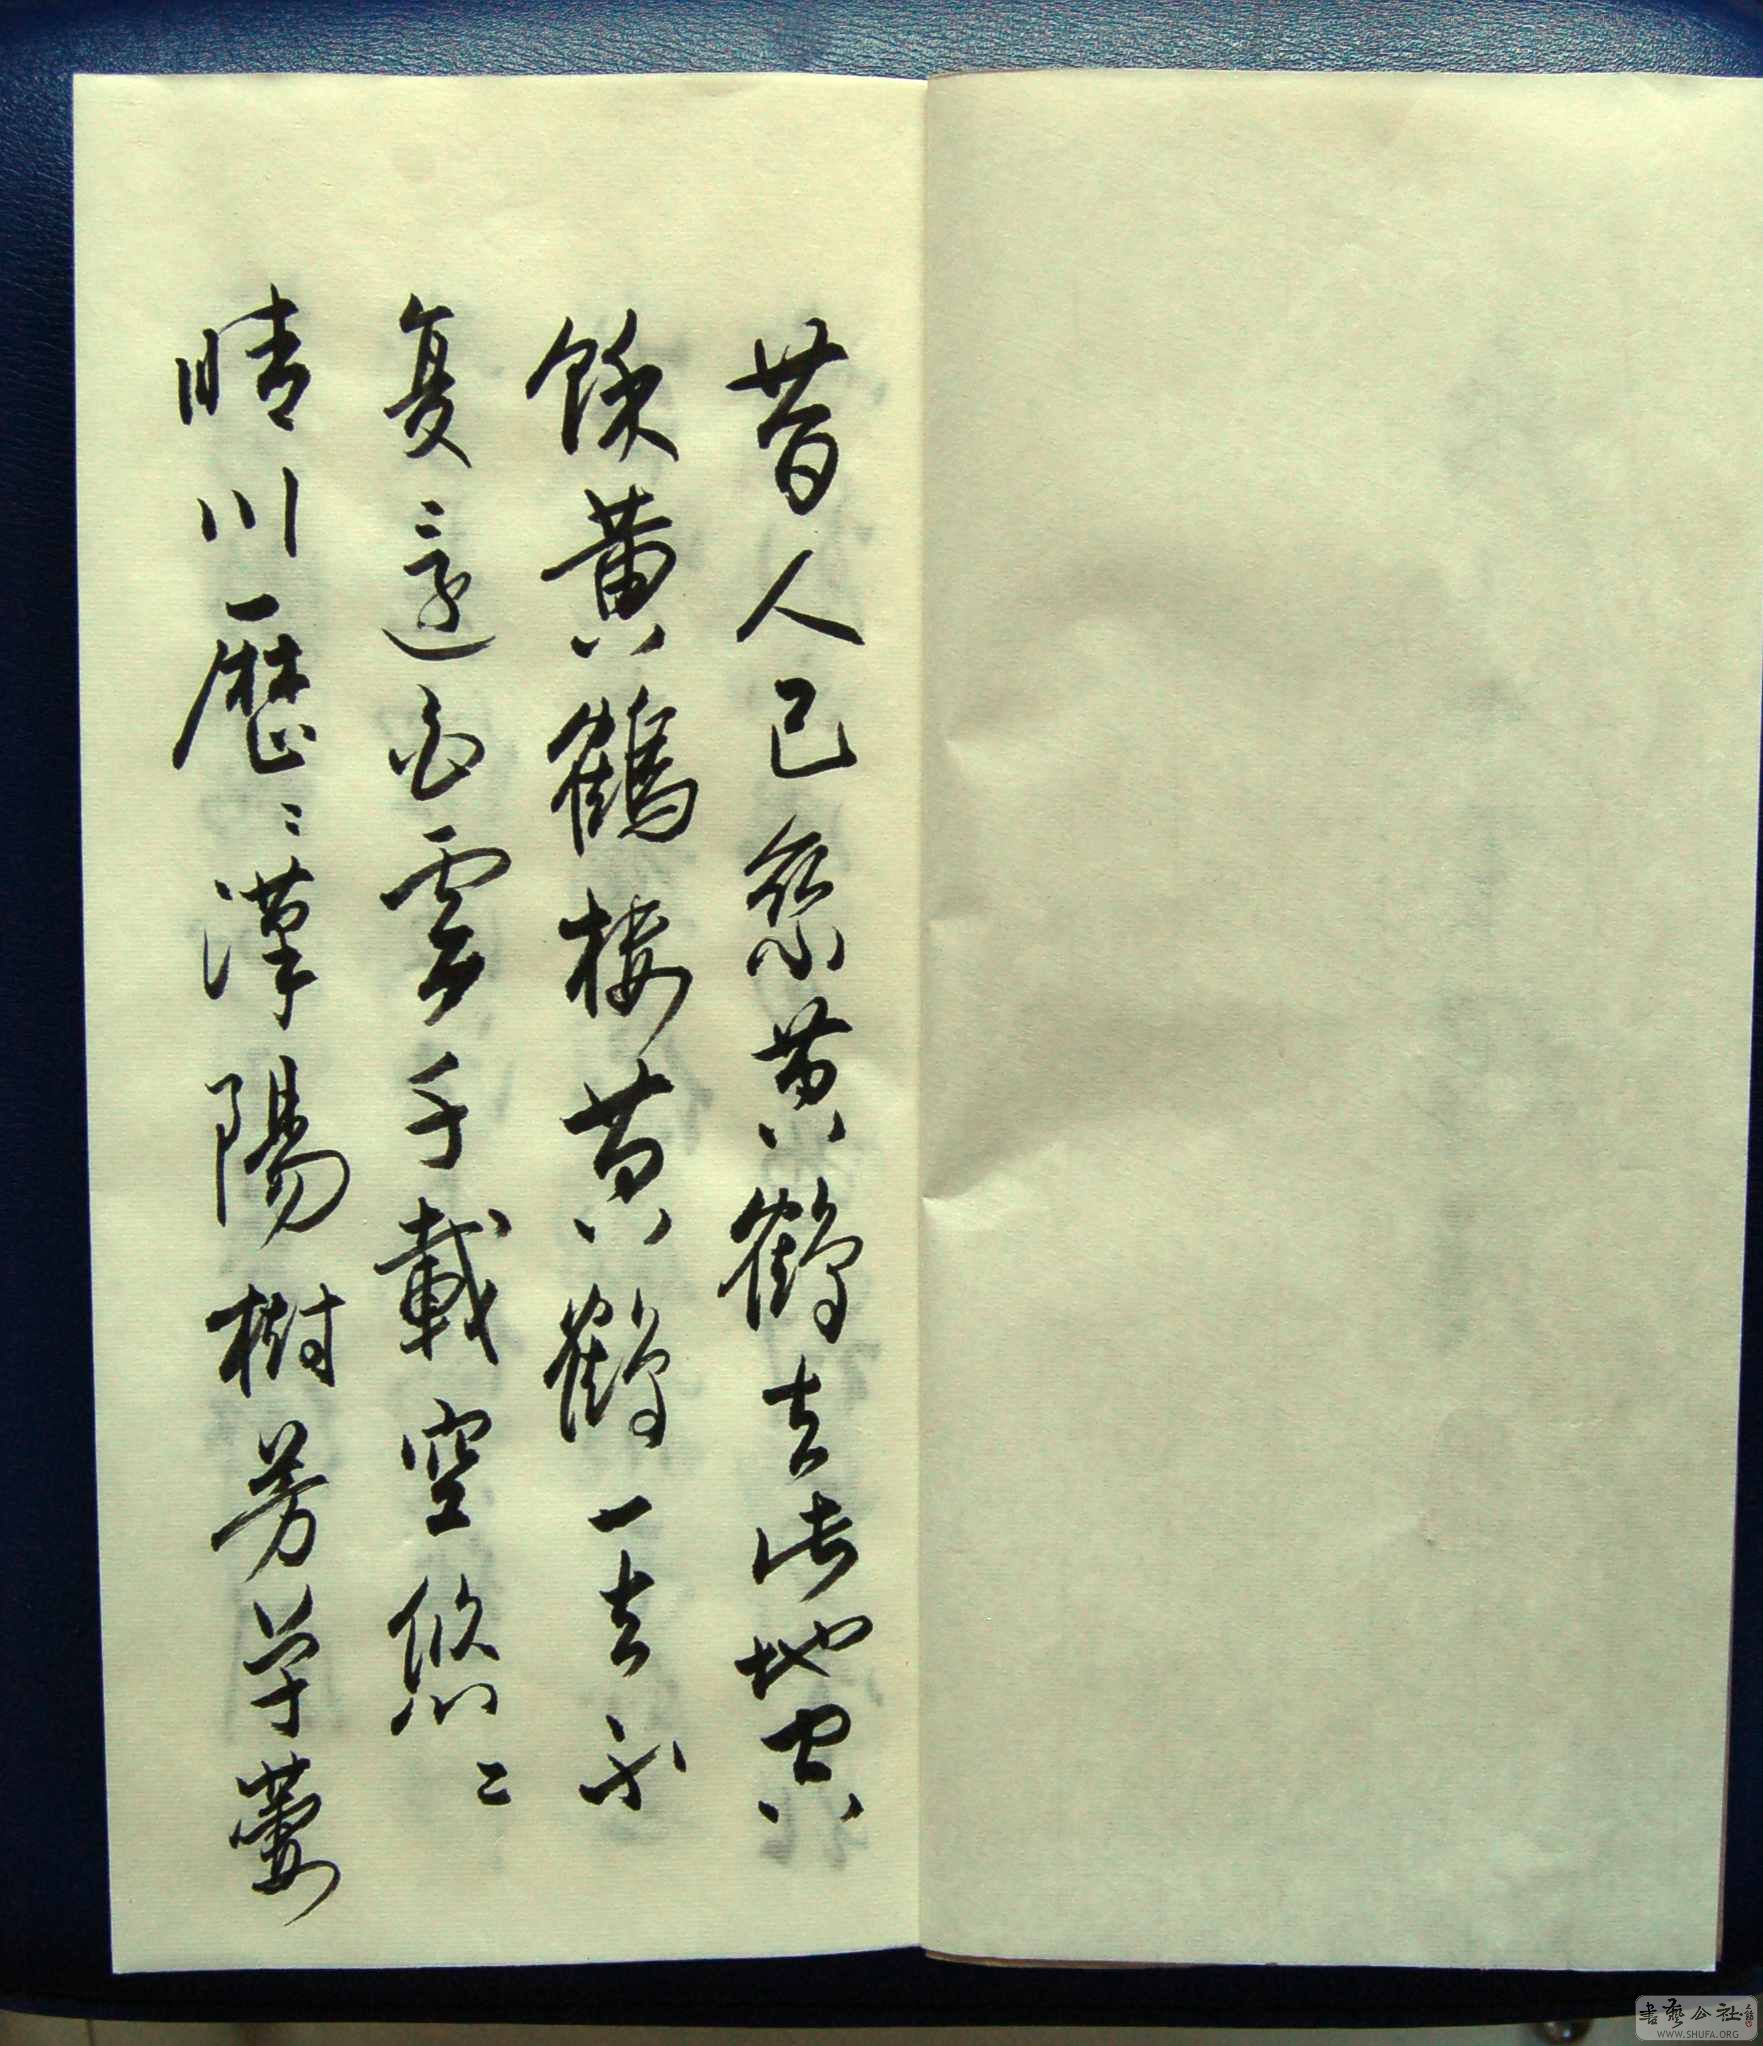 昔人已乘黄鶴去此地空
餘黄鶴樓黄鶴一去不
复返白雲千載空悠〻
晴川歷〻漢陽樹芳草萋
書藝公社
WWW.SHUFA.ORG